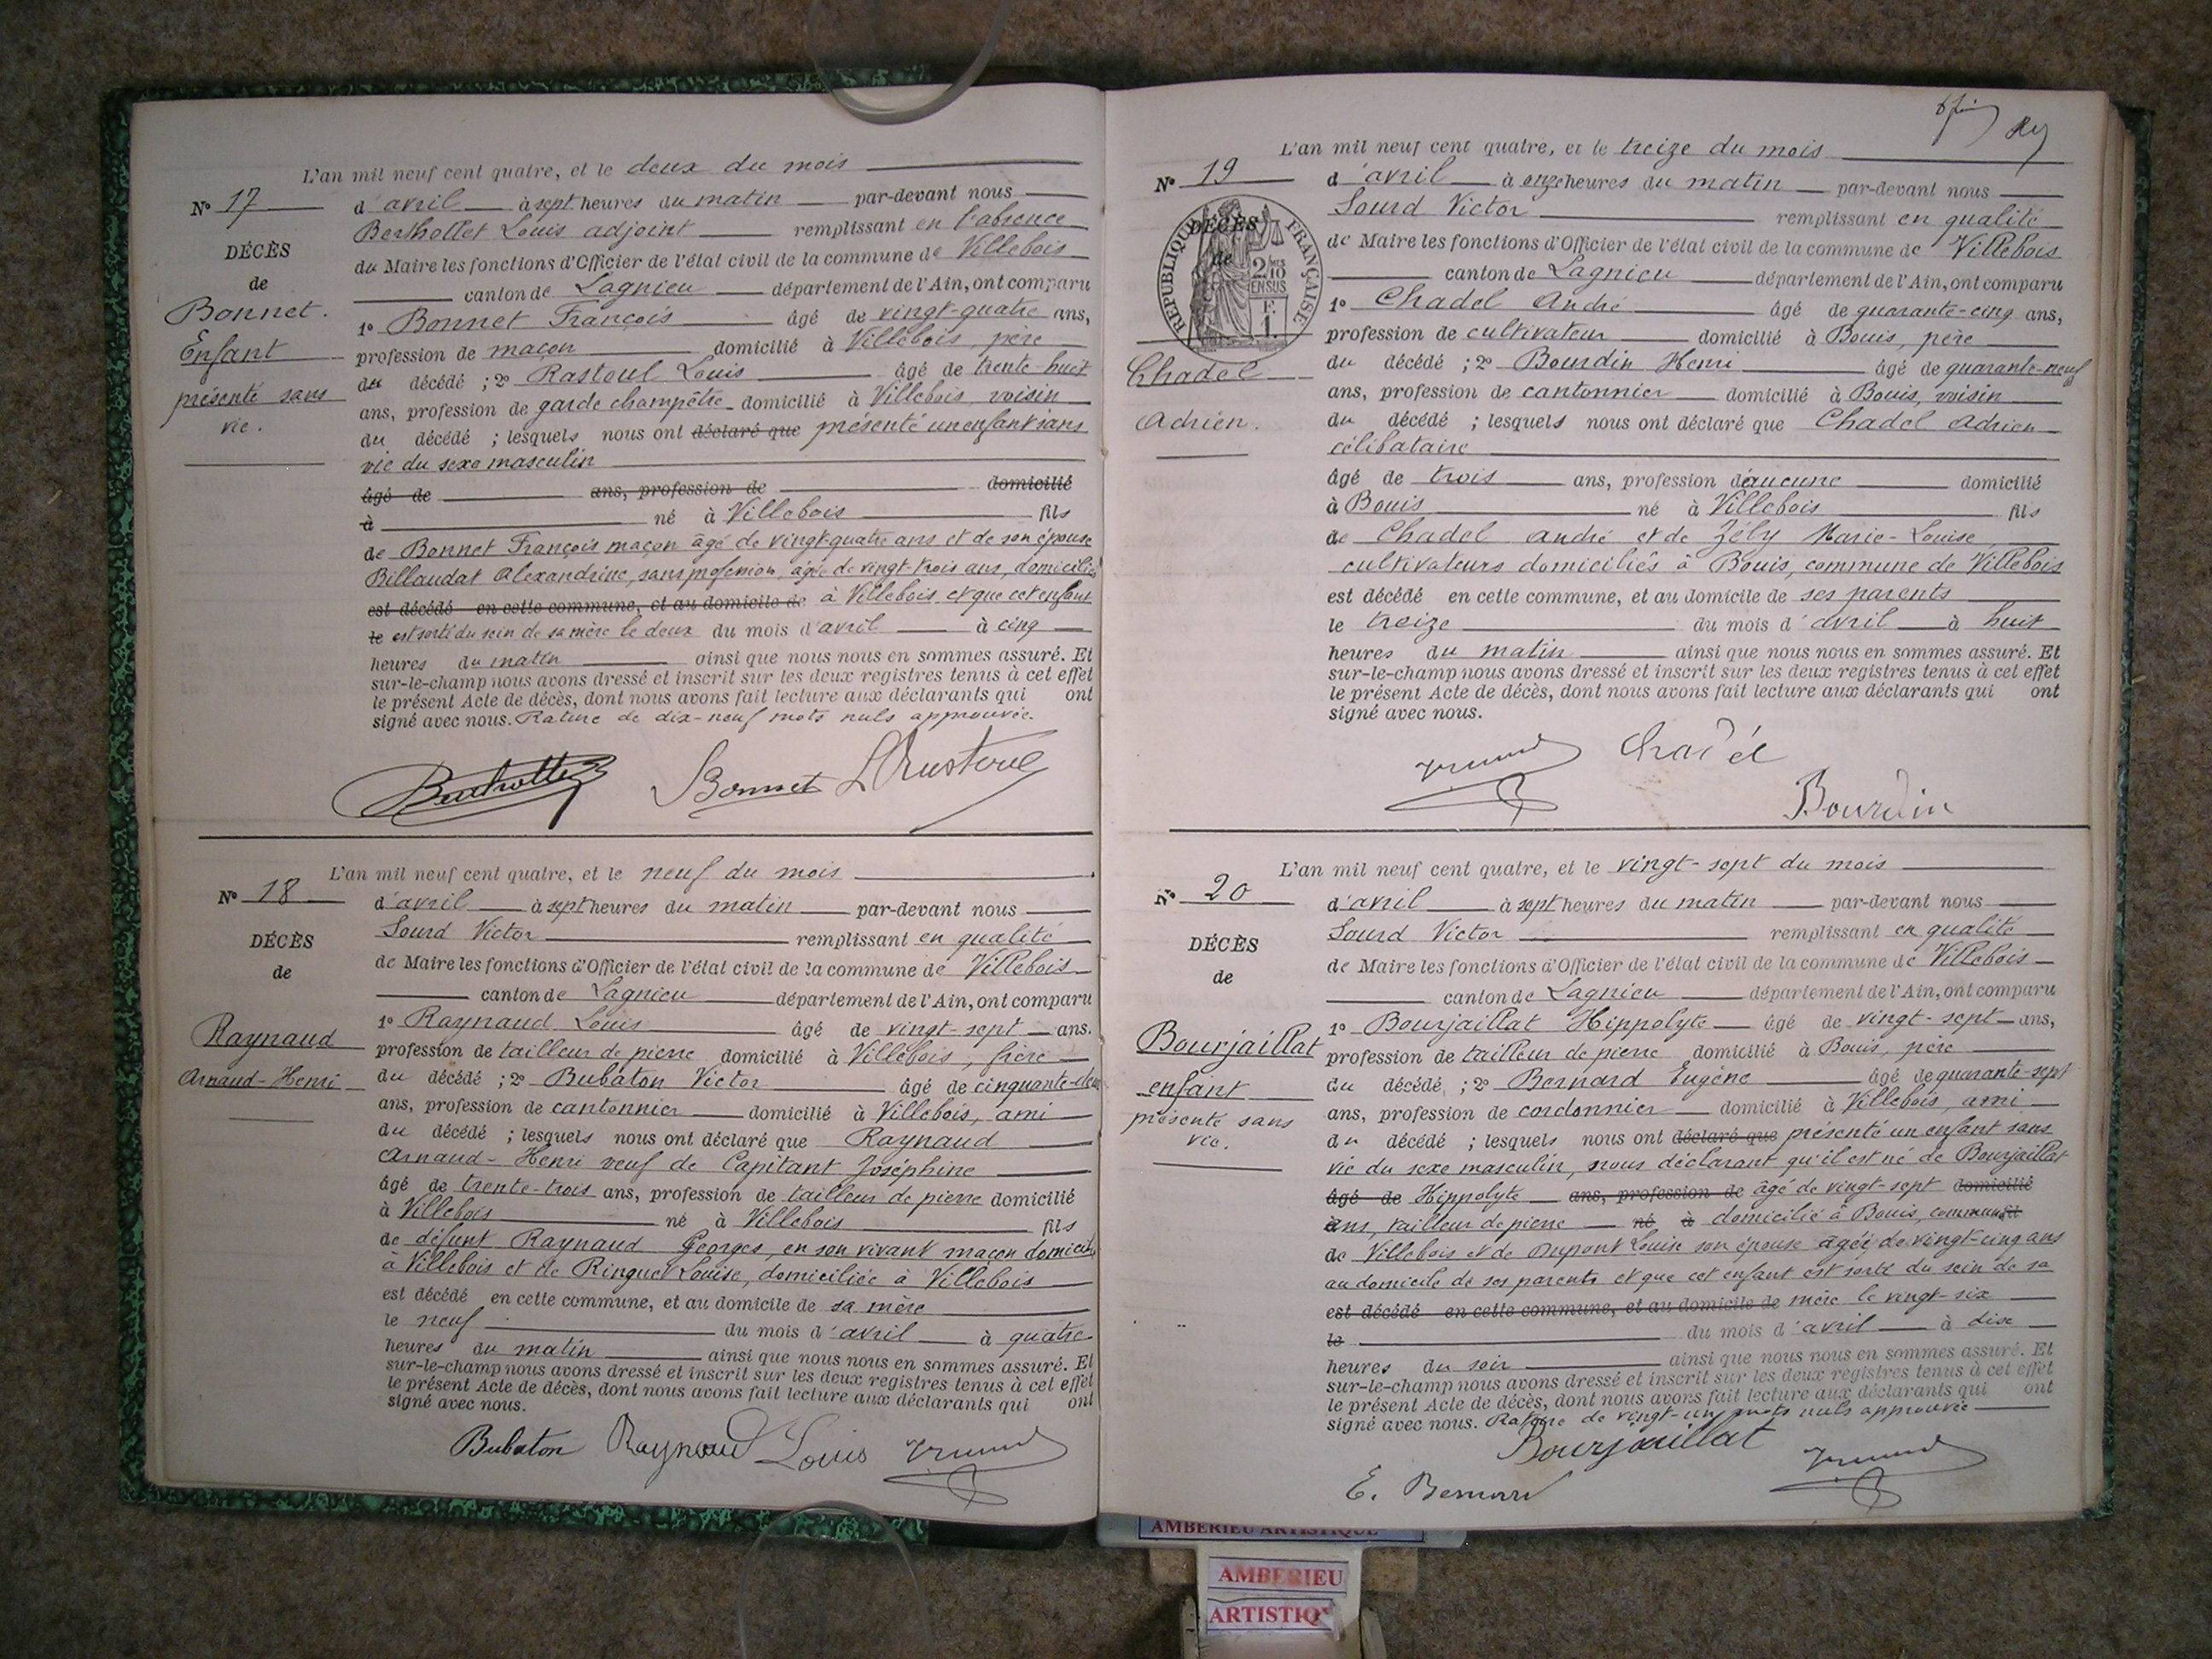 L'an mil neuf cent quatre, et le deux du mois
N° 17
d'avril à sept heures du matin par-devant nous
Berthollet Louis adjoint remplissant en l'absence
DÉCÈS
du Maire les fonctions d'Officier de l'état civil de la commune de Villebois
de
canton de Lagnieu département de l'Ain, ont comparu
Bonnet.
1° Bonnet François âgé de vingt-quatre ans,
Enfant
profession de maçon domicilié à Villebois, père
présenté sans
du décédé ; 2° Rastoul Louis âgé de trente-huit
vie.
ans, profession de garde champêtre domicilié à Villebois, voisin
du décédé ; lesquels nous ont déclaré que présenté un enfant sans
vie du sexe masculin
âgé de ans, profession de domicilié
à né à Villebois fils
de Bonnet François maçon âgé de vingt-quatre ans et de son épouse
Billaudat Alexandrine, sans profession, âgée de vingt trois ans, domiciliés
est décédé en cette commune, et au domicile de à Villebois et que cet enfant
le est sorti du sein de sa mère le deux du mois d'avril à cinq
heures du matin ainsi que nous nous en sommes assuré. Et
sur-le-champ nous avons dressé et inscrit sur les deux registres tenus à cet effet
le présent Acte de décès, dont nous avons fait lecture aux déclarants qui ont
signé avec nous. Rature de dix-neuf mots nuls approuvée.
Bonnet
L'an mil neuf cent quatre, et le neuf du mois
N° 18
d'avril à sept heures du matin par-devant nous
Sourd Victor remplissant en qualité
DÉCÈS
de Maire les fonctions d'Officier de l'état civil de la commune de Villebois
de
canton de Lagnieu département de l'Ain, ont comparu
Raynaud
1° Raynaud Louis âgé de vingt-sept ans.
Arnaud-Henri
profession de tailleur de pierre domicilié à Villebois, frère
du décédé ; 2° Bubaton Victor âgé de cinquante-deux
ans, profession de cantonnier domicilié à Villebois, ami
du décédé ; lesquels nous ont déclaré que Raynaud
Arnaud-Henri veuf de Capitant Joséphine
âgé de trente-trois ans, profession de tailleur de pierre domicilié
à Villebois né à Villebois fils
de défunt Raynaud Georges, en son vivant maçon domicilié
à Villebois et de Ringuet Louise, domiciliée à Villebois
est décédé en cette commune, et au domicile de sa mère
le neuf du mois d'avril à quatre
heures du matin ainsi que nous nous en sommes assuré. Et
sur-le-champ nous avons dressé et inscrit sur les deux registres tenus à cet effet
le présent Acte de décès, dont nous avons fait lecture aux déclarants qui ont
signé avec nous.
Bubaton Raynaud Louis
L'an mil neuf cent quatre, et le treize du mois
N° 19
d'avril à onze heures du matin par-devant nous
Sourd Victor remplissant en qualité
DÉCÈS
de
RÉPUBLIQUE FRANÇAISE
2/10 EN SUS
de Maire les fonctions d'Officier de l'état civil de la commune de Villebois
canton de Lagnieu département de l'Ain, ont comparu
1° Chadel André âgé de quarante-cinq ans,
profession de cultivateur domicilié à Bouis, père
Chadel
du décédé ; 2° Bourdin Henri âgé de quarante-neuf
ans, profession de cantonnier domicilié à Bouis, voisin
Adrien.
du décédé ; lesquels nous ont déclaré que Chadel Adrien
célibataire
âgé de trois ans, profession d'aucune domicilié
à Bouis né à Villebois fils
de Chadel André et de Zély Marie-Louise,
cultivateurs domiciliés à Bouis, commune de Villebois
est décédé en cette commune, et au domicile de ses parents
le treize du mois d'avril à huit
heures du matin ainsi que nous nous en sommes assuré. Et
sur-le-champ nous avons dressé et inscrit sur les deux registres tenus à cet effet
le présent Acte de décès, dont nous avons fait lecture aux déclarants qui ont
signé avec nous.
Chadel
Bourdin
L'an mil neuf cent quatre, et le vingt-sept du mois
N° 20
d'avril à sept heures du matin par-devant nous
Sourd Victor remplissant en qualité
DÉCÈS
de Maire les fonctions d'Officier de l'état civil de la commune de Villebois
de
canton de Lagnieu département de l'Ain, ont comparu
Bourjaillat
1° Bourjaillat Hippolyte âgé de vingt-sept ans,
profession de tailleur de pierre domicilié à Bouis, père
enfant
du décédé ; 2° Bernard Eugène âgé de quarante-sept
présenté sans
ans, profession de cordonnier domicilié à Villebois, ami
vie.
du décédé ; lesquels nous ont déclaré que présenté un enfant sans
vie du sexe masculin, nous déclarant qu'il est né de Bourjaillat
âgé de Hippolyte ans, profession de âgé de vingt-sept domicilié
ans, tailleur de pierre né à domicilié à Bouis, commune
de Villebois et de Dupont Louise son épouse âgée de vingt-cinq ans
au domicile de ses parents et que cet enfant est sorti du sein de sa
est décédé en cette commune, et au domicile de mère le vingt-six
le du mois d'avril à dix
heures du soir ainsi que nous nous en sommes assuré. Et
sur-le-champ nous avons dressé et inscrit sur les deux registres tenus à cet effet
le présent Acte de décès, dont nous avons fait lecture aux déclarants qui ont
signé avec nous. Rature de vingt-un mots nuls approuvée
Bourjaillat
E. Bernard
AMBERIEU ARTISTIQUE
AMBERIEU
ARTISTIQ